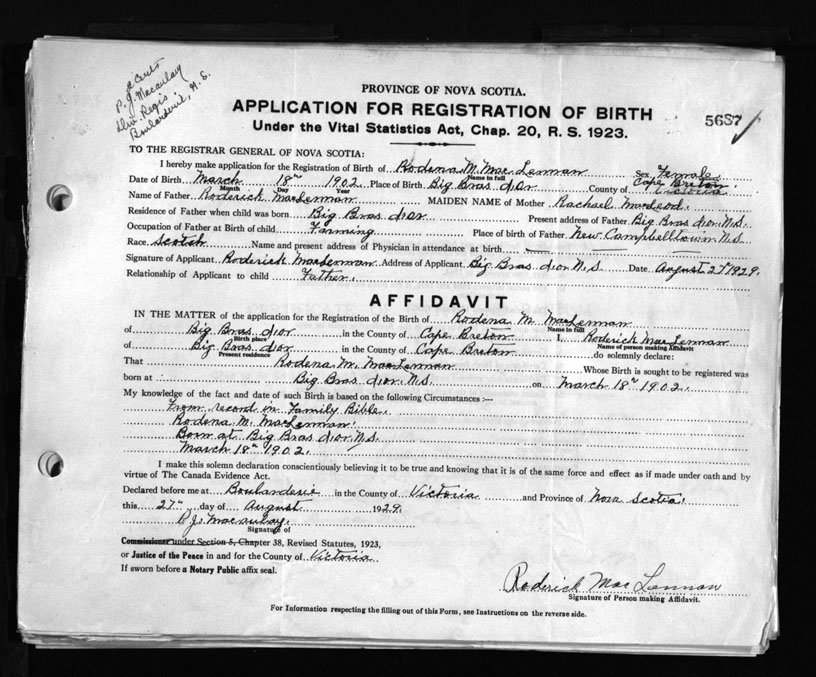 & Cert
P. J. Macaulay
Div. Regis
Boularderie, N.S.
PROVINCE OF NOVA SCOTIA.
APPLICATION FOR REGISTRATION OF BIRTH
Under the Vital Statistics Act, Chap. 20, R. S. 1923.
5687
TO THE REGISTRAR GENERAL OF NOVA SCOTIA:
I hereby make application for the Registration of Birth of Rodena M. MacLennan Sex Female
Name in full Cape Breton
Date of Birth March 18th 1902 Place of Birth Big Bras d'or County of Victoria
Month Day Year
Name of Father Roderick MacLennan MAIDEN NAME of Mother Rachael MacLeod
Residence of Father when child was born Big Bras d'or Present address of Father Big Bras d'or N.S.
Occupation of Father at Birth of child Farming Place of birth of Father New Campbelltown N.S
Race Scotch Name and present address of Physician in attendance at birth
Signature of Applicant Roderick MacLennan Address of Applicant Big Bras d'or N.S. Date August 27 1929.
Relationship of Applicant to child Father.
AFFIDAVIT
IN THE MATTER of the application for the Registration of the Birth of Rodena M. MacLennan
Name in full
of Big Bras d'or in the County of Cape Breton I, Roderick MacLennan
Birth place Name of person making Affidavit
of Big Bras d'or in the County of Cape Breton do solemnly declare:
Present residence
That Rodena M. MacLennan Whose Birth is sought to be registered was
born at Big Bras d'or N.S on March 18th 1902.
My knowledge of the fact and date of such Birth is based on the following Circumstances :—
From record in Family Bible.
Rodena M. MacLennan.
Born at Big Bras d'or N.S.
March 18th 1902.
I make this solemn declaration conscientiously believing it to be true and knowing that it is of the same force and effect as if made under oath and by
virtue of The Canada Evidence Act.
Declared before me at Boularderie in the County of Victoria and Province of Nova Scotia.
this 27th day of August 1929.
P.J. Macaulay.
Signature of
Commissioner under Section 5, Chapter 38, Revised Statutes, 1923,
or Justice of the Peace in and for the County of Victoria
If sworn before a Notary Public affix seal.
Roderick MacLennan
Signature of Person making Affidavit.
For Information respecting the filling out of this Form, see Instructions on the reverse side.